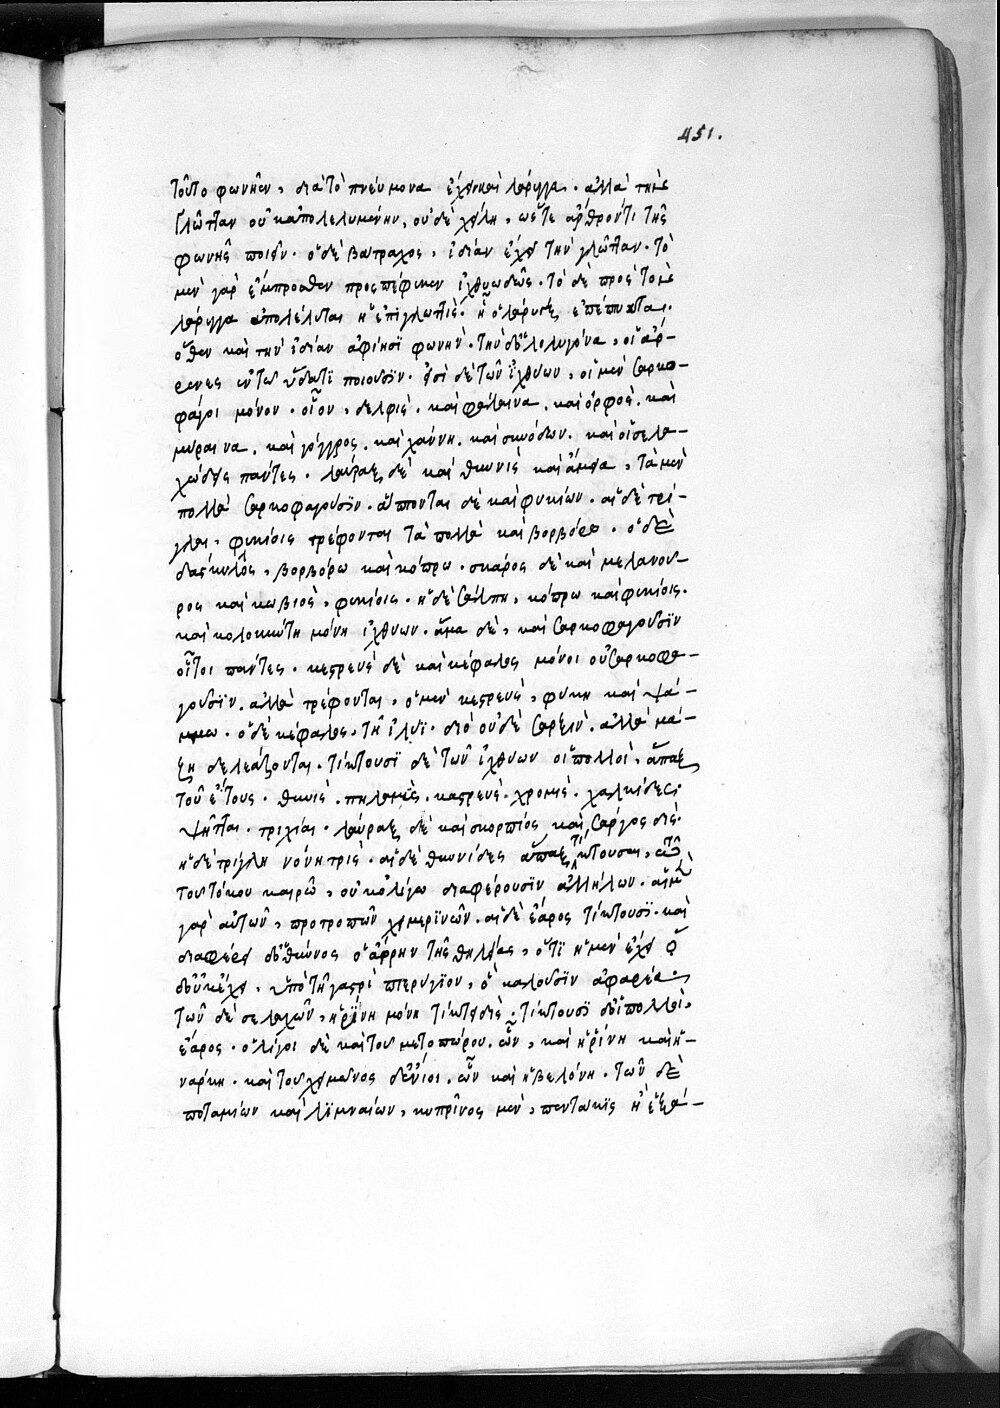 451.
τοῦτο φωνῆεν, διὰ τὸ πνεύμονα ἔχειν καὶ λάρυγγα. ἀλλὰ τὴν
γλῶτταν οὐκ ἀπολελυμένην, οὐδὲ χείλη, ὥστε ἀρθροῦν τι τῆς
φωνῆς ποιεῖν. ὁ δὲ βάτραχος, ἰδίαν ἔχει τὴν γλῶτταν. τὸ
μὲν γὰρ ἔμπροσθεν προσπέφυκεν ἰχθυωδῶς. τὸ δὲ πρὸς τὸν
λάρυγγα ἀπολέλυται ἡ ἐπιγλωττὶς. ἢ ὁ λάρυγξ ἐπέπτυκται.
ὅθεν καὶ τὴν ἰδίαν ἀφίησϊ φωνὴν. τὴν δὲ ὀλολυγόνα, οἱ ἄρ-
ρενες ἐν τῷ ὕδατϊ ποιοῦσϊν. εἰσὶ δὲ τῶν ἰχθύων, οἱ μὲν σαρκο-
φάγοι μόνον. οἷον, δελφὶς. καὶ φάλαινα. καὶ ὀρφὸς. καὶ
μύραινα. καὶ γόγγρος. καὶ χάννη. καὶ συνόδων. καὶ οἱ σελα-
χώδεις πάντες. λαύραξ δὲ καὶ θυννὶς καὶ ἄμεια, τὰ μὲν
πολλὰ σαρκοφαγοῦσϊν. ἅπτονται δὲ καὶ φυκίων. αἱ δὲ τρί-
γλαι, φυκίοις τρέφονται τὰ πολλὰ καὶ βορβόρῳ. ὁ δὲ
δασκυλὸς, βορβόρω καὶ κόπρω. σκάρος δὲ καὶ μελανου-
ρος καὶ κωβιὸς, φυκίοις. ἡ δὲ σάλπη, κόπρω καὶ φυκίοις.
καὶ κολοκύντη μόνη ἰχθύων. ἅμα δὲ, καὶ σαρκοφαγοῦσϊν
οὗτοι πάντες. κεστρεὺς δὲ καὶ κέφαλος μόνοι οὐ σαρκοφα-
γοῦσϊν. ἀλλὰ τρέφονται, ὁ μὲν κεστρεὺς, φύκη καὶ ψά-
μμω. ὁ δὲ κέφαλος, τῆ ἰλύϊ. διὸ οὐδὲ σαρκὶ. ἀλλὰ μά-
ζη δελεάζονται. τίκτουσϊ δὲ τῶν ἰχθύων οἱ πολλοὶ, ἅπαξ
τοῦ ἔτους. θυννὶς. πηλαμὺς. κεστρεὺς. χρόμις. χαλκίδες.
ψῆττα. τριχίαι. λαύραξ δὲ καὶ σκορπίος καὶ σαργὸς δὶς.
ἡ δὲ τρίγλη μόνη τρὶς. αἱ δὲ θυννίδες ἅπαξ τίκτουσαι, ἐν τῶ
τοῦ τόκου καιρῶ, οὐκ ὀλίγω διαφέρουσϊν ἀλλήλων. αἱ μὲν
γὰρ αὐτῶν, πρὸ τροπῶν χειμερϊνῶν. αἱ δὲ ἔαρος τίκτουσϊ. καὶ
διαφέρει δὲ θύννος ὁ ἄρρην τῆς θηλείας, ὅτϊ ἡ μὲν ἔχει ὁ
δὲ οὐκ ἔχει. ὑπὸ τῆ γαστρὶ πτερύγϊον, ὃ καλοῦσϊν ἀφαρέα.
τῶν δὲ σελαχῶν, ἡ ῥίνη μόνη τίκτει δὶς. τίκτουσϊ δὲ οἱ πολλοὶ,
ἔαρος. ὀλίγοι δὲ καὶ τοῦ μετοπώρου. ὧν, καὶ ἡ ῥίνη καὶ ἡ
νάρκη. καὶ τοῦ χειμῶνος δὲ ἔνιοι. ὧν καὶ ἡ βελόνη. τῶν δὲ
ποταμίων καὶ λϊμναίων, κυπρῖνος μὲν, πεντάκϊς ἢ ἑξά-